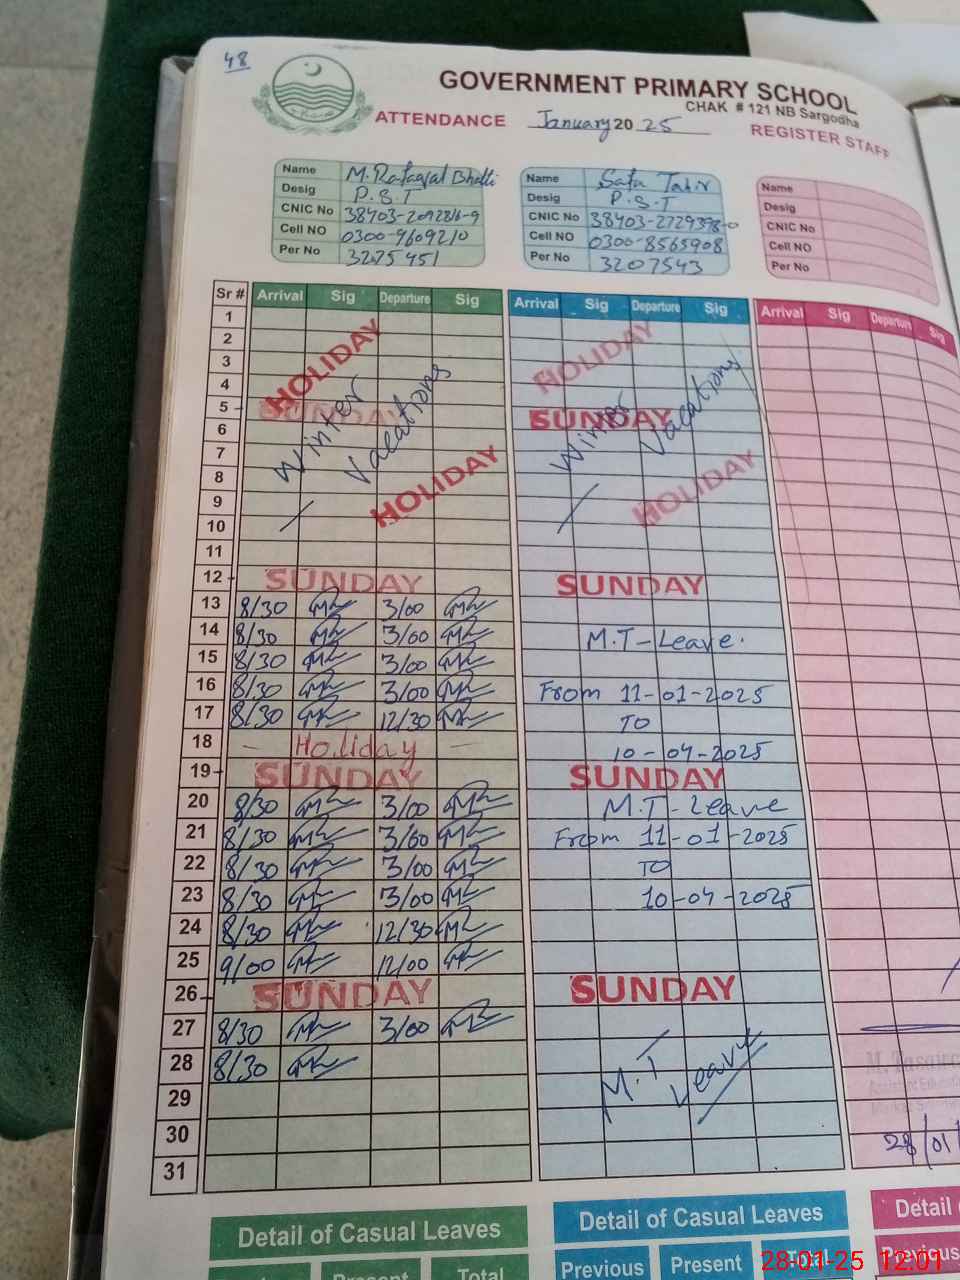 48
GOVERNMENT PRIMARY SCHOOL
CHAK # 121 NB Sargodha
ATTENDANCE January 2025 REGISTER STAFF
Name M. Rafaqat Bhatti
Desig P.S.T
CNIC No
Cell NO 0300-9609210
Per No 3275451
Name Safa Tahir
Desig P.S.T
CNIC No 38403-2729398-0
Cell NO 0300-8565908
Per No 3207543
Name
Desig
CNIC No
Cell NO
Per No
Sr # Arrival Sig Departure Sig Arrival Sig Departure Sig Arrival Sig Departure Sig
1
2 HOLIDAY HOLIDAY
3
4
5 SUNDAY SUNDAY
6 Winter Vacations Winter Vacations
7
8
9 HOLIDAY HOLIDAY
10
11
12 SUNDAY SUNDAY
13 8/30 3/00
14 8/30 3/00 M.T-Leave.
15 8/30 3/00
16 8/30 3/00 From 11-01-2025
17 8/30 12/30 TO
18 Holiday 10-04-2025
19 SUNDAY SUNDAY
20 8/30 3/00 M.T-Leave
21 8/30 3/00 From 11-01-2025
22 8/30 3/00 TO
23 8/30 3/00 10-04-2025
24 8/30 12/30
25 9/00 12/00
26 SUNDAY SUNDAY
27 8/30 3/00
28 8/30 M.T Leave
29
30 28/01/
31
Detail of Casual Leaves Detail of Casual Leaves Detail
Present Total Previous Present Total Previous
28-01-25 12:01